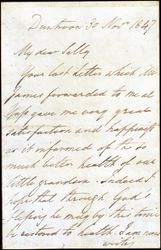 Dunhroon 30 Nov 1847
My dear Selby
Your last letter which Mr
James forwarded to me at
gave me very great
satisfaction and happiness
as it informed of the so
much better health of our
little grandson. Indeed I
hope that through God's
blessing he may by this time
be restored to health. I am now
writing